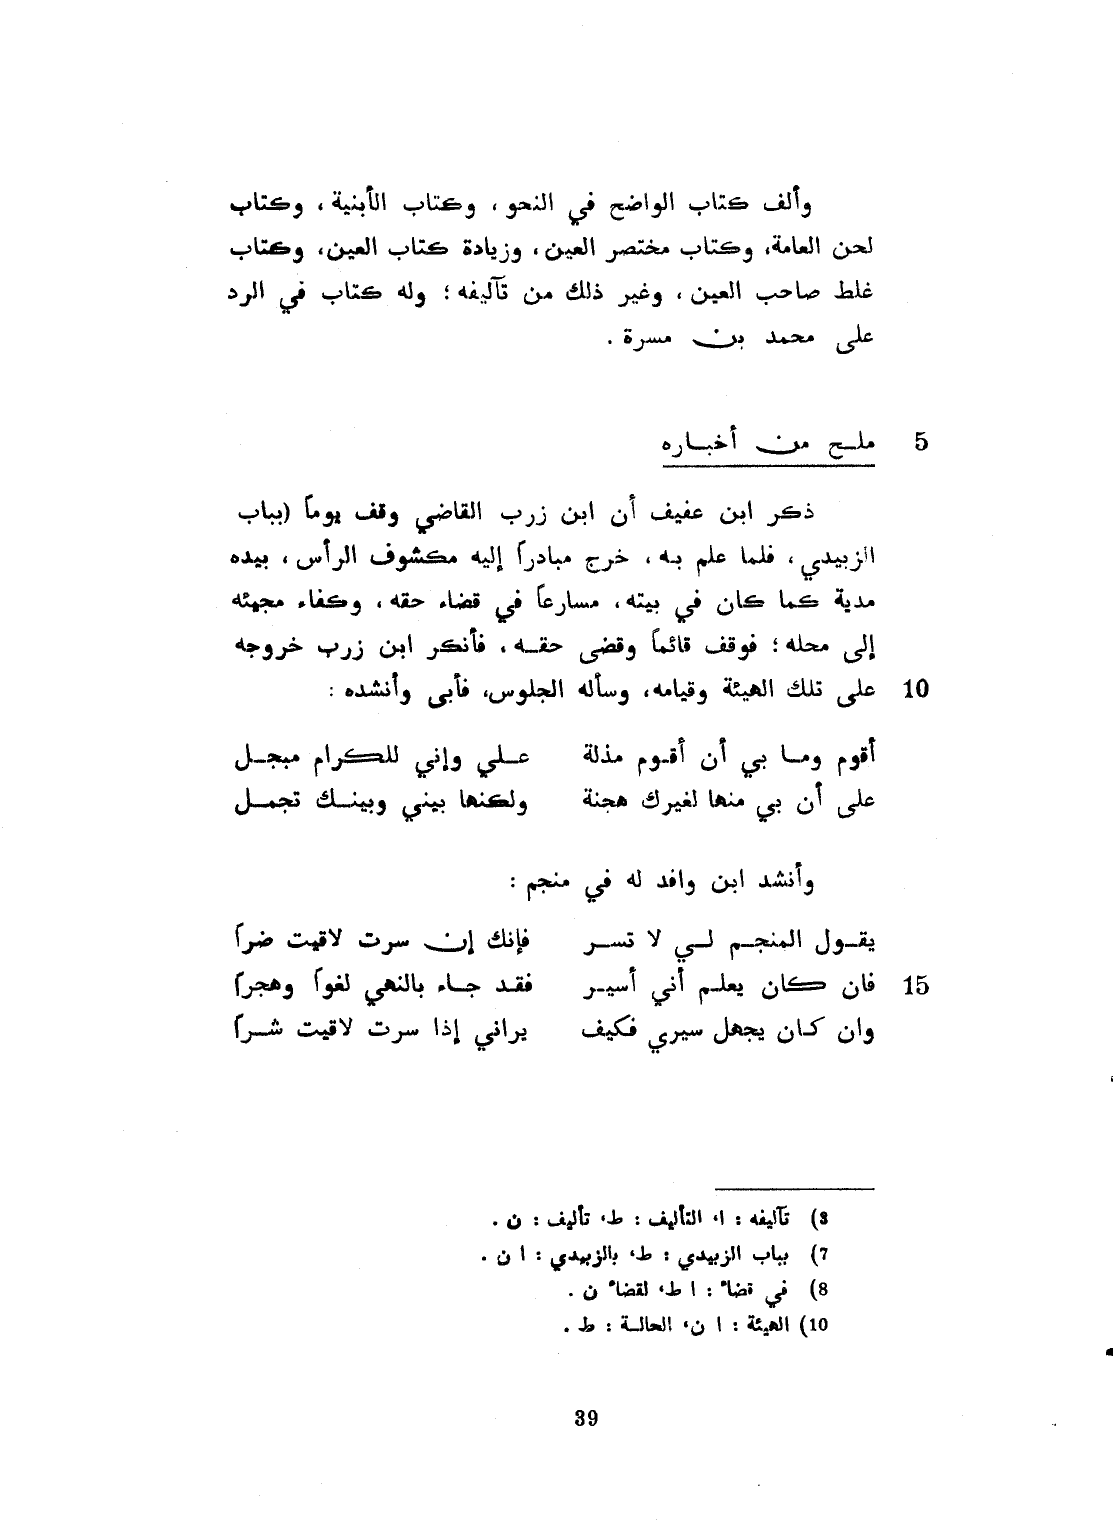 وألف كتاب الواضح في النحو ، وكتاب الأبنية ، وكتاب
لحن العامة، وكتاب مختصر العين، وزيادة كتاب العين، وكتاب
غلط صاحب العين ، وغير ذلك من تآليفه ؛ وله كتاب في الرد
على محمد بن مسرة .
5 ملح من أخباره
ذكر ابن عفيف أن ابن زرب القاضي وقف يوماً (بباب
الزبيدي ، فلما علم به ، خرج مبادراً إليه مكشوف الرأس ، بيده
مدية كما كان في بيته ، مسارعاً في قضاء حقه ، وكفاء مجيئه
إلى محله ؛ فوقف قائماً وقضى حقه ، فأنكر ابن زرب خروجه
10 على تلك الهيئة وقيامه، وسأله الجلوس، فأبى وأنشده :
أقوم وما بي أن أقوم مذلة علي وإني للكرام مبجل
على أن بي منها لغيرك هجنة ولكنها بيني وبينك تجمل
وأنشد ابن وافد له في منجم :
يقول المنجم لي لا تسر فإنك إن سرت لاقيت ضراً
15 فان كان يعلم أني أسير فقد جاء بالنهي لغواً وهجراً
وان كان يجهل سيري فكيف يراني إذا سرت لاقيت شراً
3) تآليفه : ا، التأليف : ط، تأليف : ن .
7) بباب الزبيدي : ط، بالزبيدي : ا ن .
8) في قضاء : ا ط، لقضاء ن .
10) الهيئة : ا ن، الحالة : ط .
39